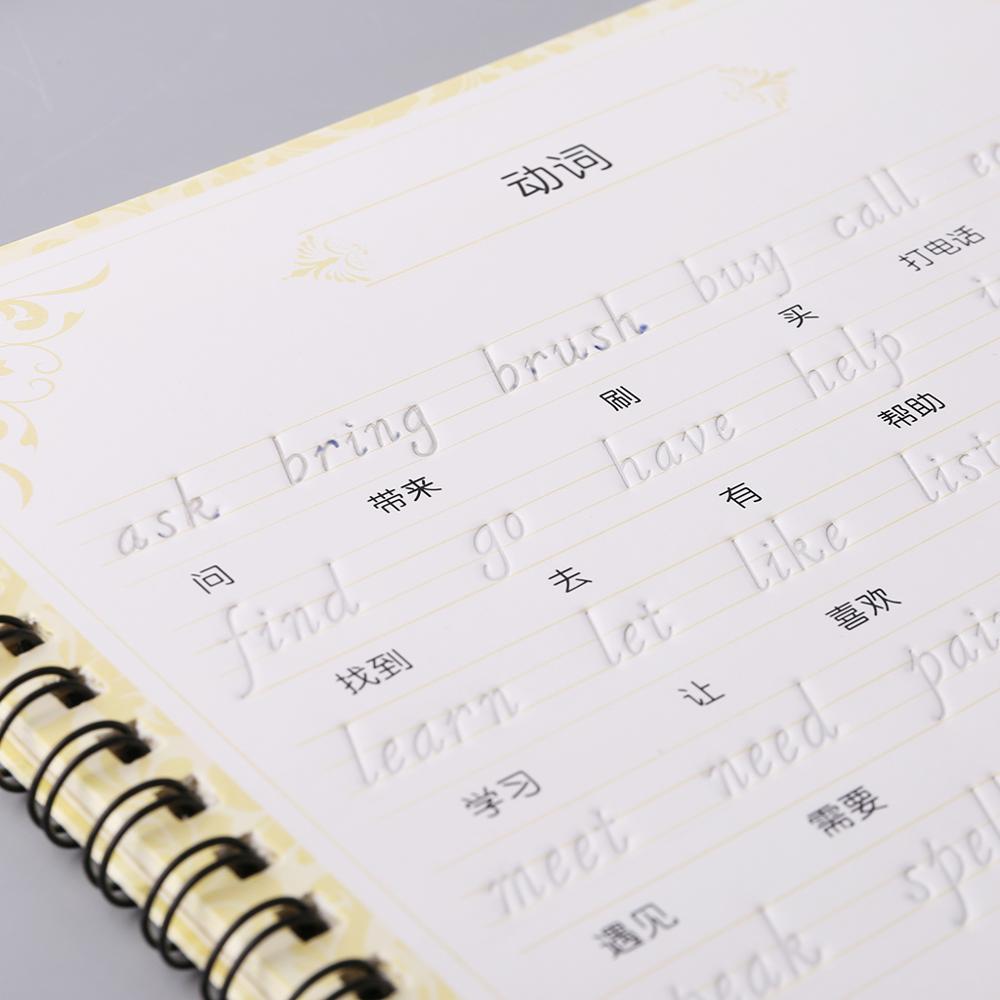 动词
ask bring brush buy call
问 带来 刷 买 打电话
find go have help
找到 去 有 帮助
learn let like list
学习 让 喜欢
meet need pai
遇见 需要
peak spel